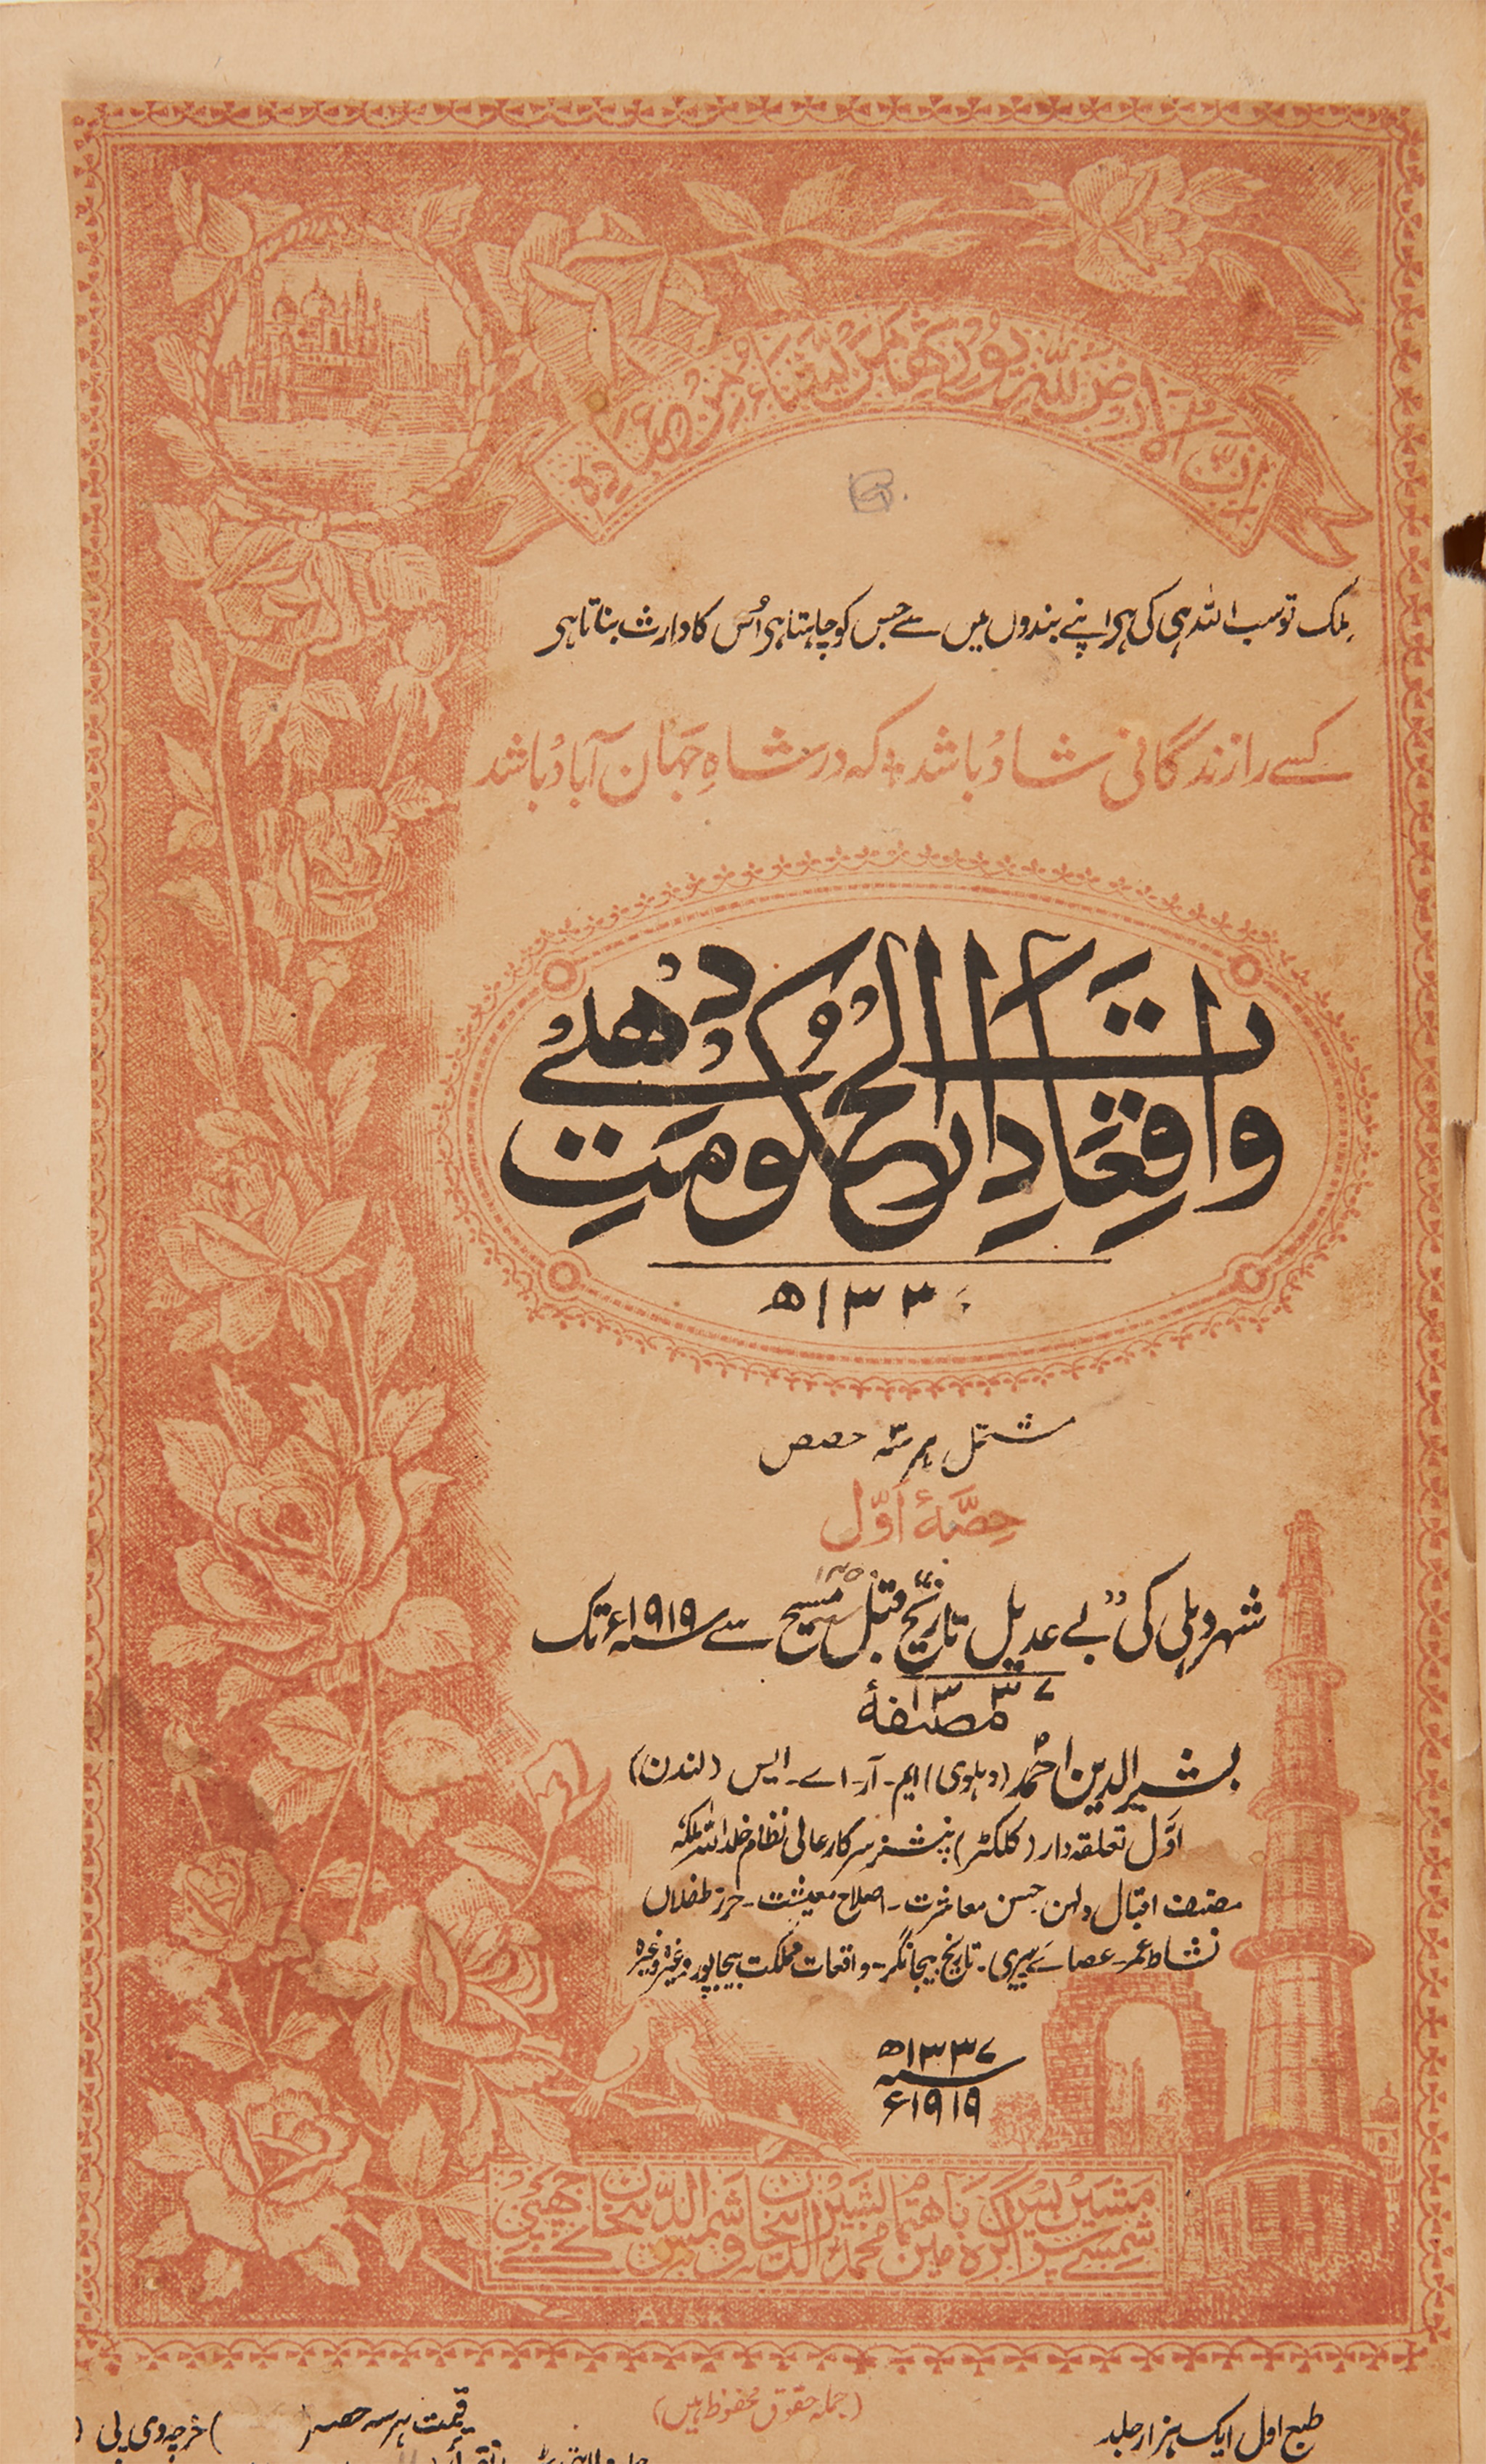 اِنَّ الْاَرْضَ لِلّٰهِ یُوْرِثُهَا مَنْ یَّشَآءُ مِنْ عِبَادِهٖ
مِلک تو سب اللہ ہی کی ہی اپنے بندوں میں سے جس کو چاہتا ہی اُس کا وارث بناتا ہی
کسے را زندگانی شاد باشد ؞ کہ در شاہِ جہان آباد باشد
واقعات دارالحکومتِ دهلی
۱۳۳۰ھ
مشتمل بر سہ حصص
حِصَّۂ اوّل
۱۴۵۰
شہر دہلی کی "بے عدیل تاریخ" قبل مسیح سے سنہ ۱۹۱۹ء تک
۱۳۳۷
مصنفۂ
بشیرالدین احمد (دہلوی) ایم-آر-اے-ایس (لندن)
اوّل تعلقہ دار (کلکٹر) پنشنر سرکار عالی نظام خلد اللہ ملکہٗ
مصنف اقبال دلہن حسن معاشرت - اصلاح معیشت - حرز طفلاں
نشاط عمر - عصائے پیری - تاریخ بیجانگر - واقعات مملکت بیجاپور وغیرہ وغیرہ
۱۳۳۷ھ
سنہ
۱۹۱۹ء
شمسی مشین پریس آگرہ مین
(جملہ حقوق محفوظ ہیں)
طبع اول ایک ہزار جلد
قیمت ہر سہ حصہ ( ) خرچہ وی پی (